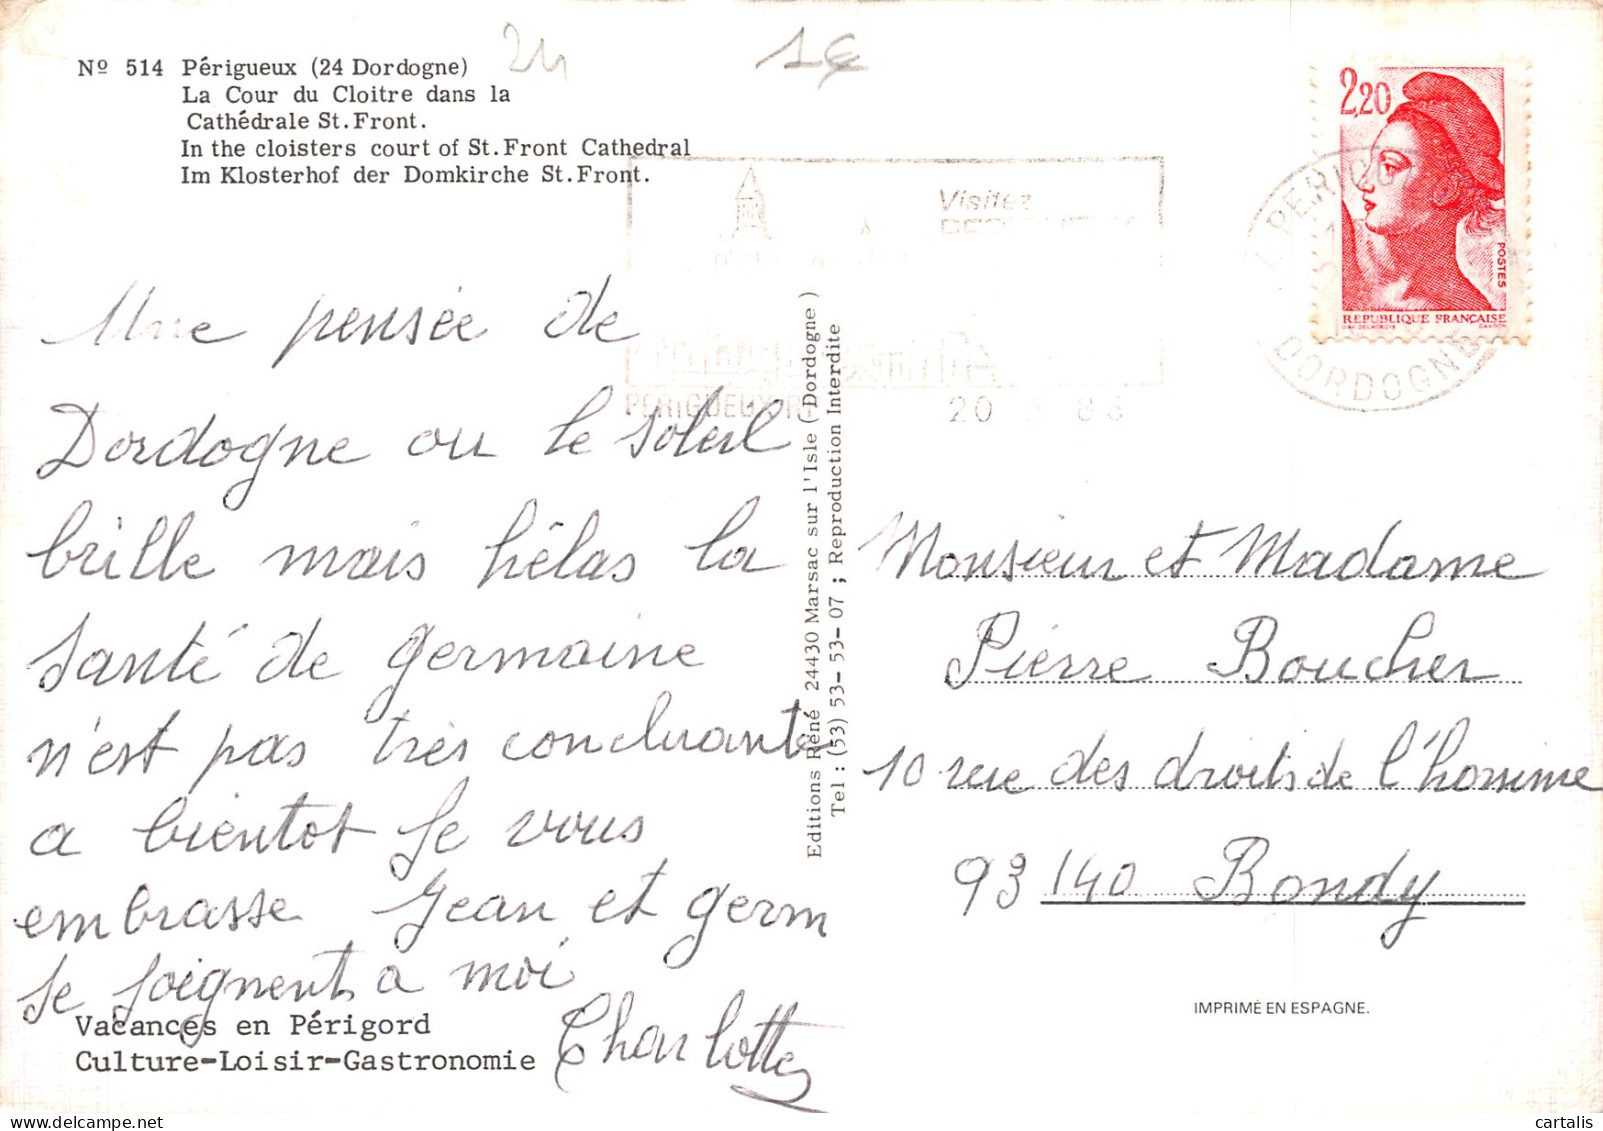 Nº 514 Périgueux (24 Dordogne)
La Cour du Cloitre dans la
Cathédrale St. Front.
In the cloisters court of St. Front Cathedral
Im Klosterhof der Domkirche St. Front.
24
1€
2,20
POSTES
REPUBLIQUE FRANÇAISE
Visitez
PERIGUEUX
20
DORDOGNE
Une pensée de
Dordogne ou le soleil
brille mais hélas la
santé de germaine
n'est pas très concluante
a bientot je vous
embrasse Jean et germ
se joignent a moi
Charlotte
Vacances en Périgord
Culture-Loisir-Gastronomie
Editions René 24430 Marsac sur l'Isle (Dordogne)
Tel : (53) 53-53-07 ; Reproduction Interdite
Monsieur et Madame
Pierre Boucher
10 rue des droits de l'homme
93140 Bondy
IMPRIMÉ EN ESPAGNE.
cartalis